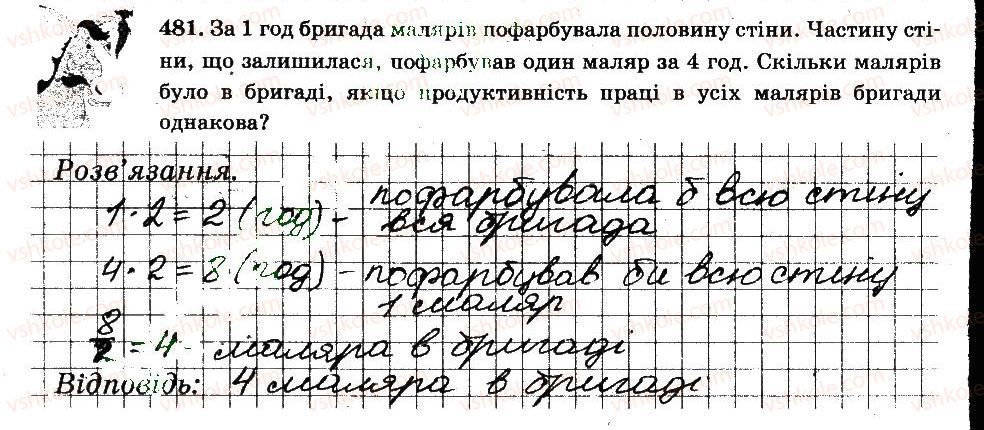 481. За 1 год бригада малярів пофарбувала половину стіни. Частину сті-
ни, що залишилася, пофарбував один маляр за 4 год. Скільки малярів
було в бригаді, якщо продуктивність праці в усіх малярів бригади
однакова?
Розв'язання.
1·2=2 (год) – пофарбувала б всю стіну
вся бригада
4·2=8 (год) – пофарбував би всю стіну
1 маляр
8/2 = 4 – маляра в бригаді
Відповідь: 4 маляра в бригаді